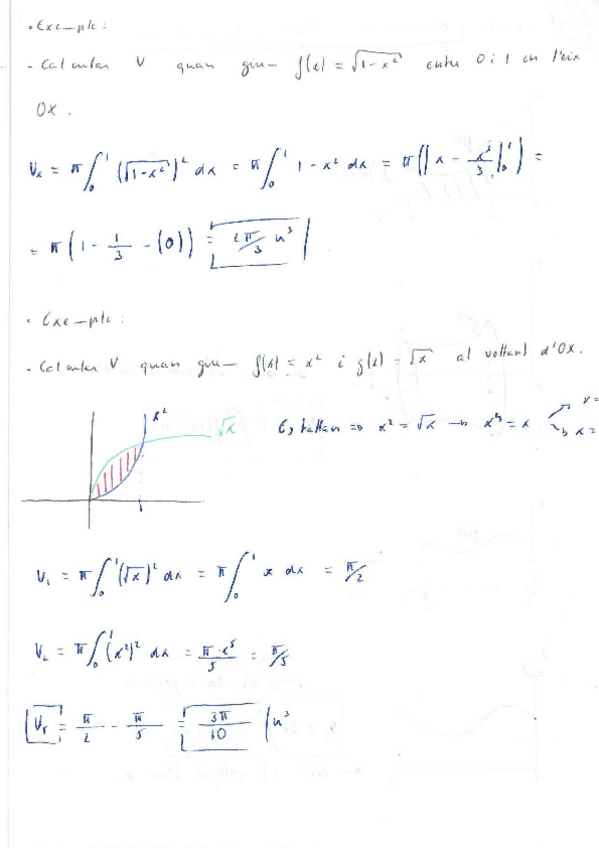 • Exemple:
- Calcular V quan girem f(x) = √(1-x²) entre 0 i 1 en l'eix
OX.
Vx = π ∫₀¹ (√(1-x²))² dx = π ∫₀¹ 1-x² dx = π(|x - x³/3|₀¹) =
= π(1 - 1/3 - (0)) = 2π/3 u³
• Exemple:
- Calcular V quan girem f(x) = x² i g(x) = √x al voltant d'OX.
x²
√x
Es tallen => x² = √x → x⁴ = x
x=
x=
1
V₁ = π ∫₀¹ (√x)² dx = π ∫₀¹ x dx = π/2
V₂ = π ∫₀¹ (x²)² dx = π·x⁵/5 = π/5
VT = π/2 - π/5 = 3π/10 u³